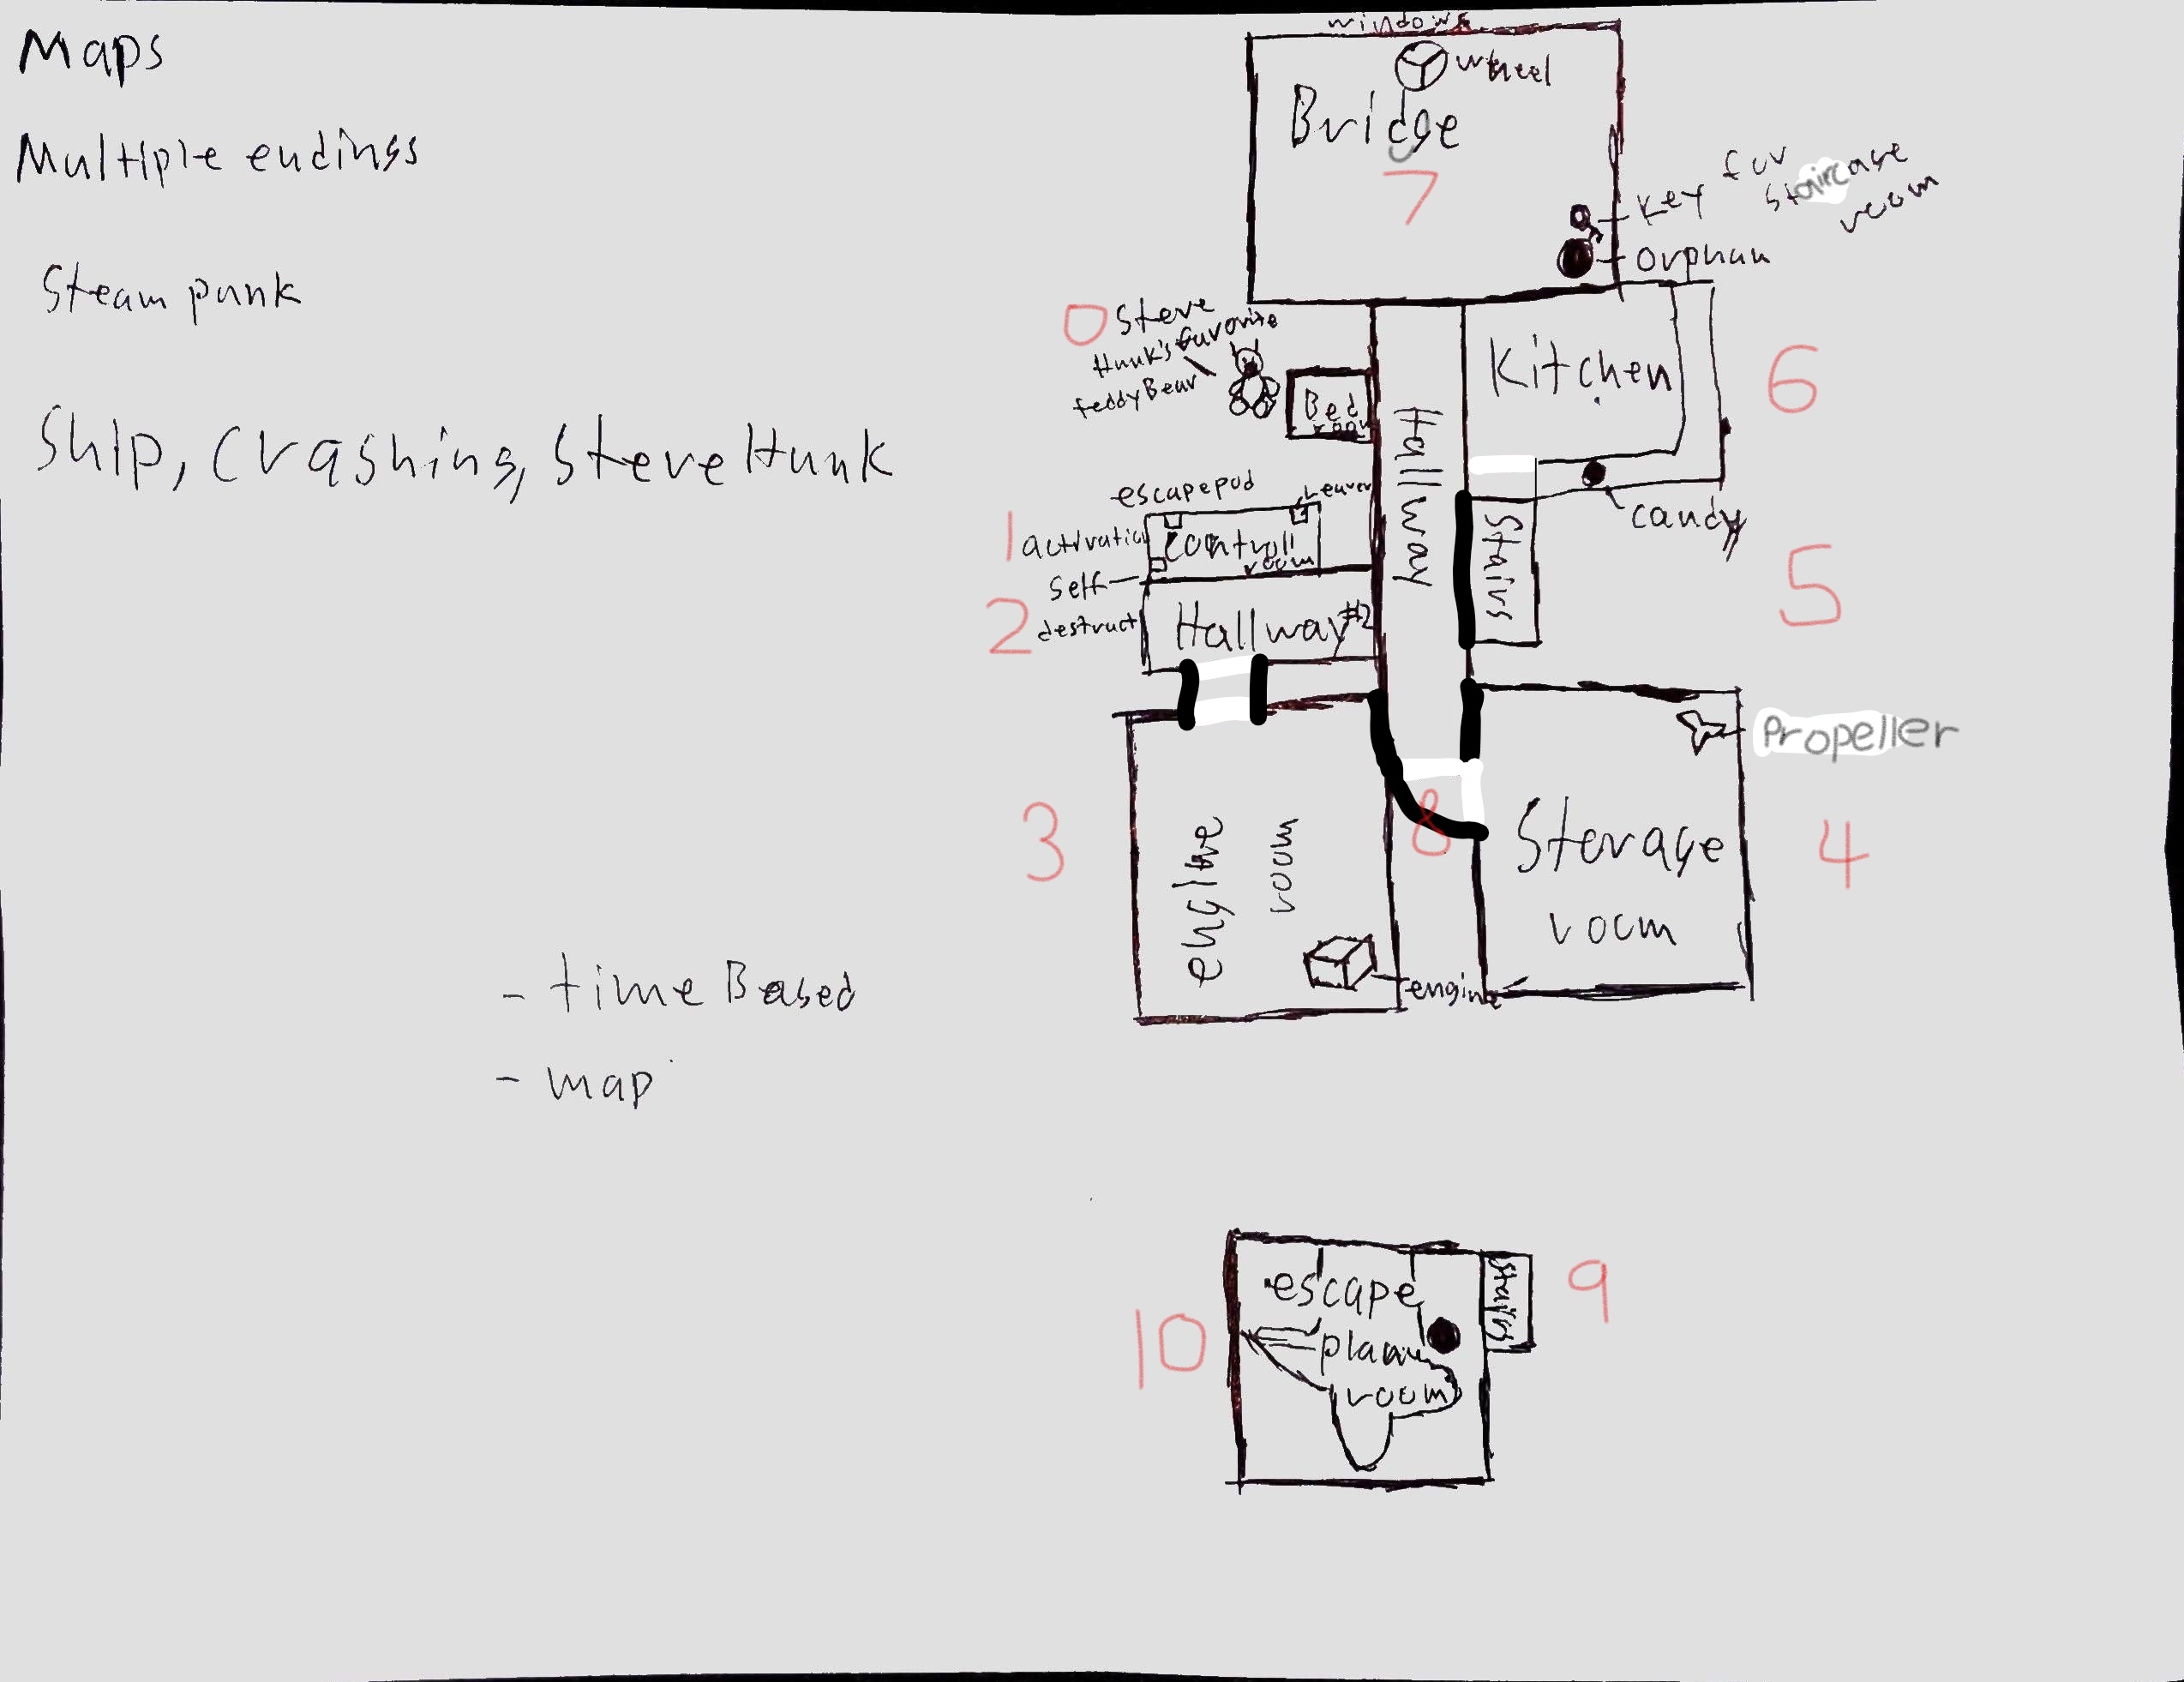 Maps
Multiple endings
Steam punk
Ship, crashing, Steve Hunk
- time Based
- map
windows
wheel
Bridge
7
key for
staircase
room
orphan
0 Steve
Hunk's favorite
teddy Bear
Bed
room
Hallway
Kitchen
6
candy
escapepod
Leaver
1 activation
controll
room
self
destruct
2
Hallway #2
Stairs
5
Propeller
3
engine
room
engine
8
Storage
room
4
escape
plan
room
Stairs
9
10